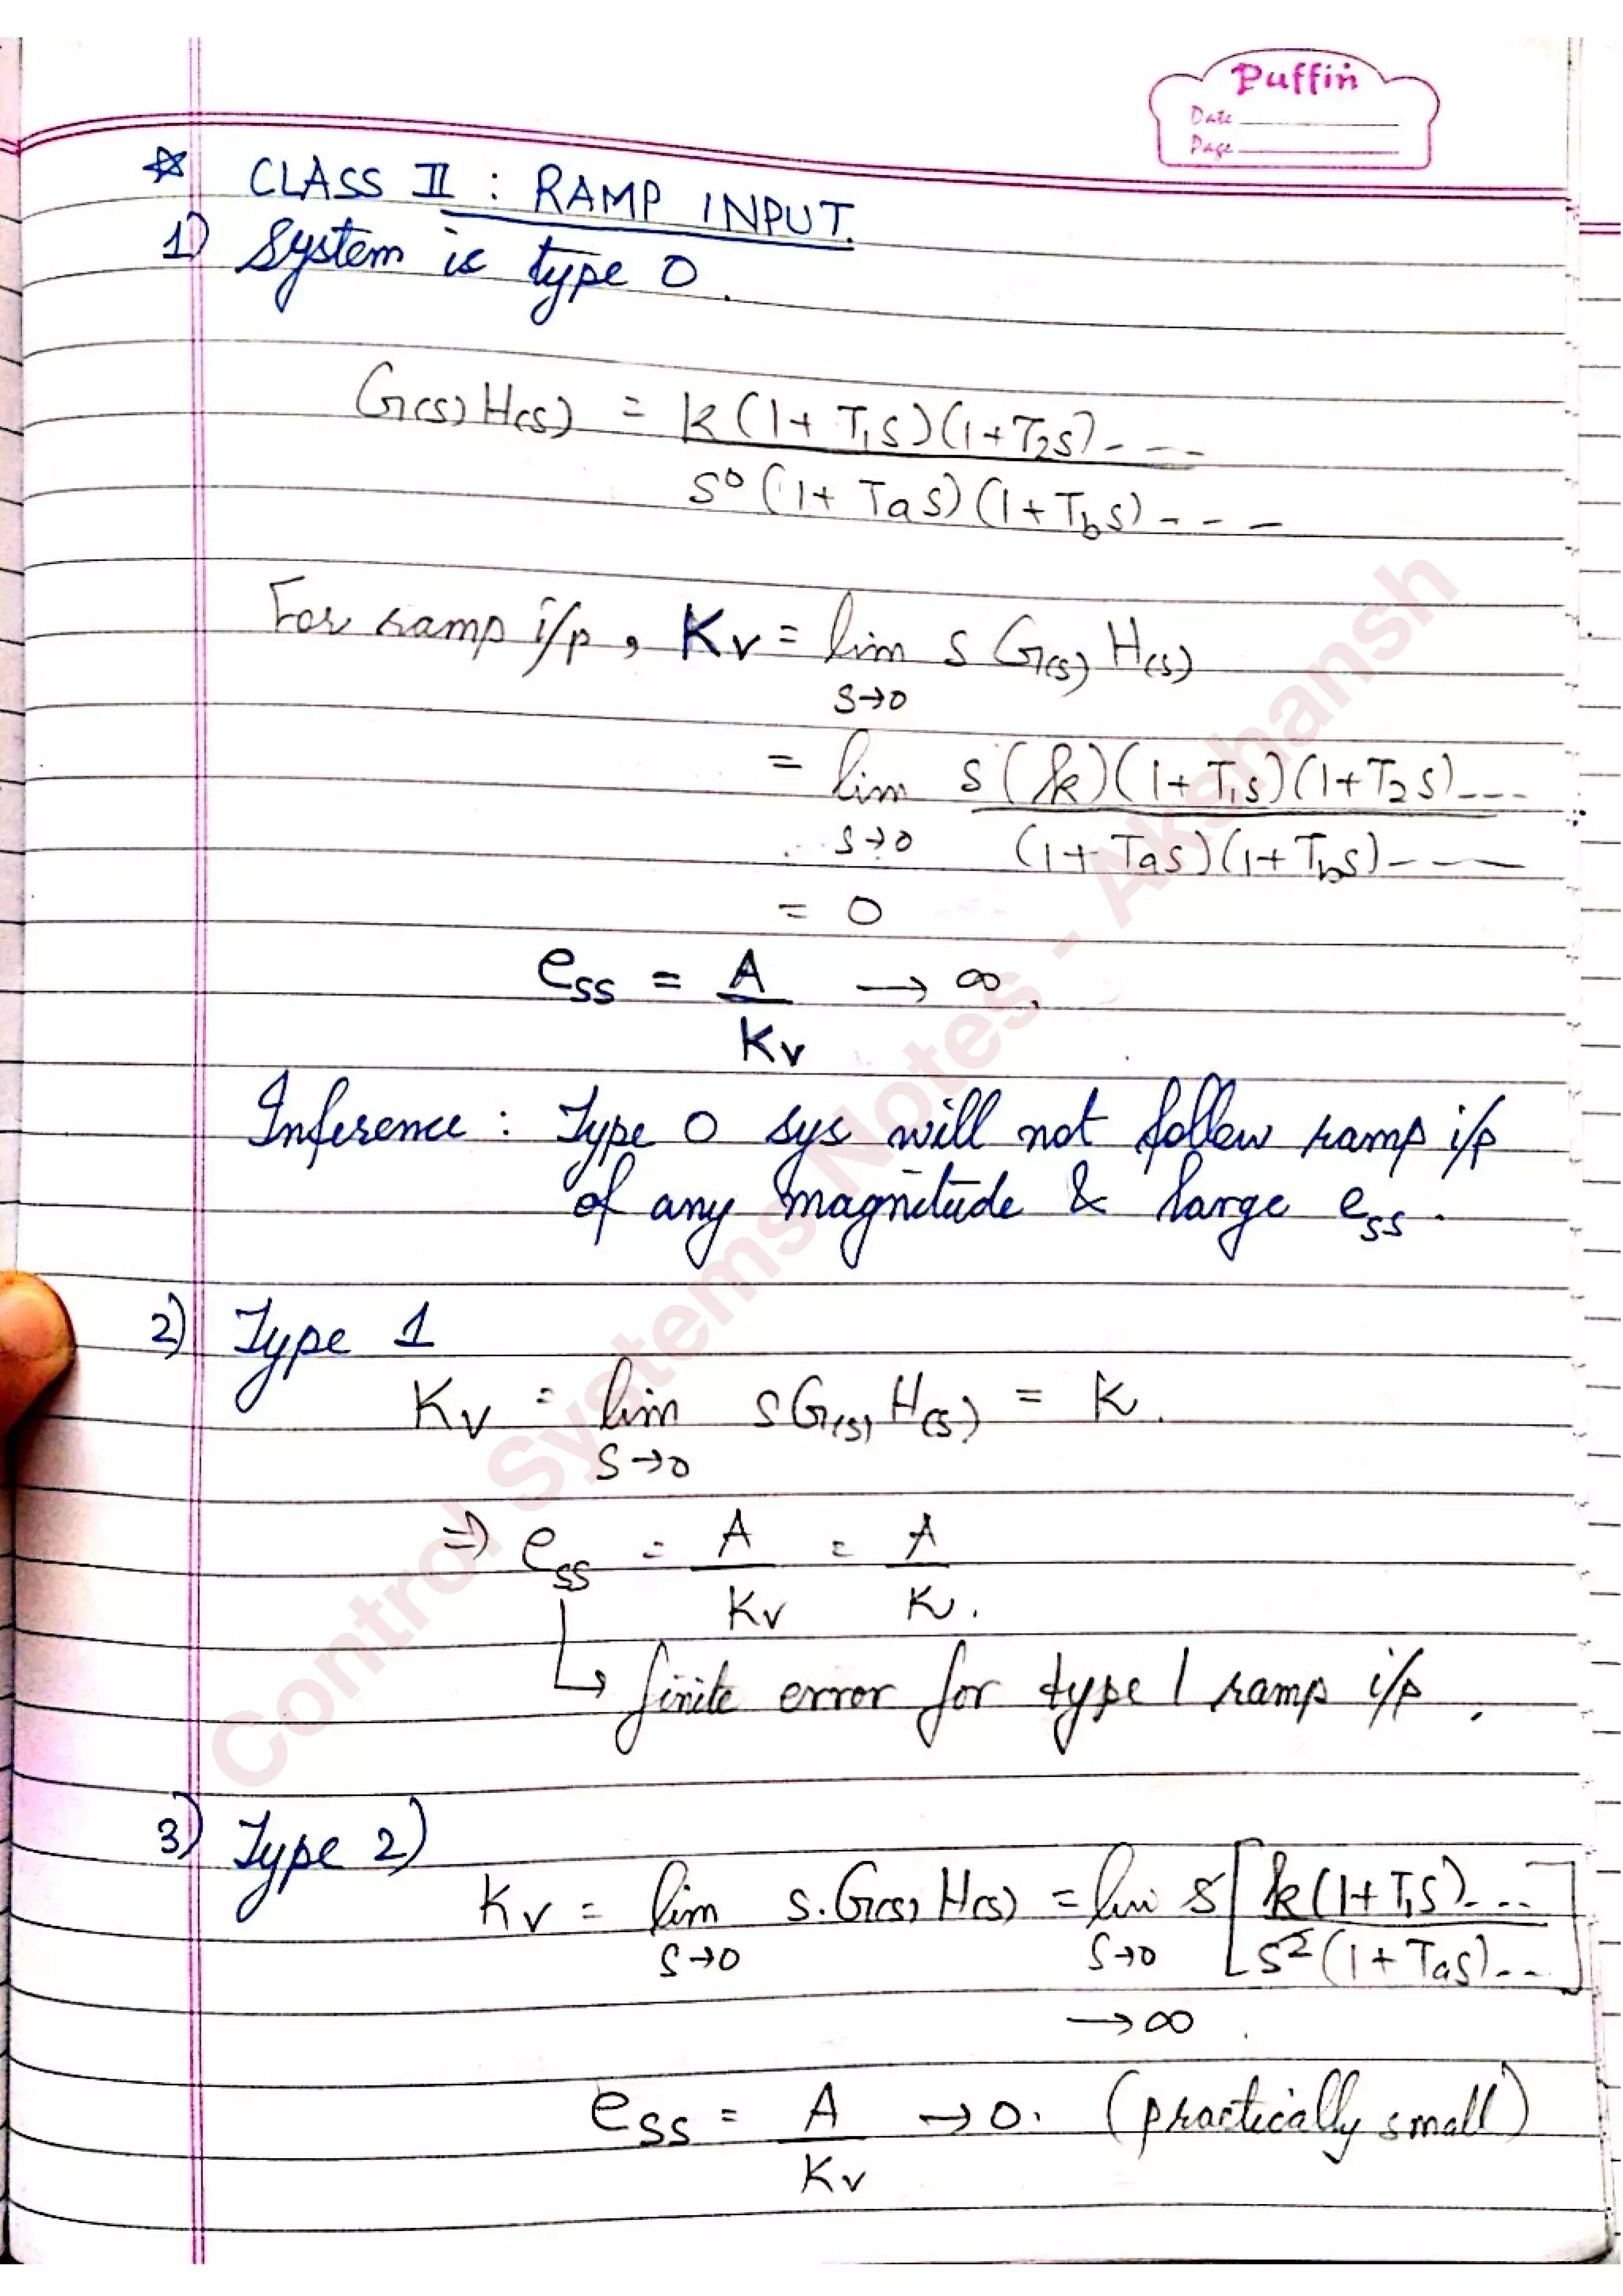 Puffin
Date
Page
☆ CLASS II : RAMP INPUT.
1) System is type 0.
G(s) H(s) = k(1+T₁s)(1+T₂s)- - -
s⁰(1+Tas)(1+Tbs)- - -
For ramp i/p, Kv = lim s G(s) H(s)
s→0
= lim s(k)(1+T₁s)(1+T₂s)---
s→0 (1+Tas)(1+Tbs)- - -
= 0
ess = A → ∞,
Kv
Inference : Type 0 sys will not follow ramp i/p
of any magnitude & large ess.
2) Type 1
Kv = lim sG(s) H(s) = K.
s→0
⇒ ess = A = A
Kv K.
↳ finite error for type 1 ramp i/p.
3) Type 2)
Kv = lim s.G(s) H(s) = lim s[k(1+T₁s)...
s→0 s→0 s²(1+Tas)...]
→∞
ess = A → 0. (practically small)
Kv
Control Systems Notes - Akshansh